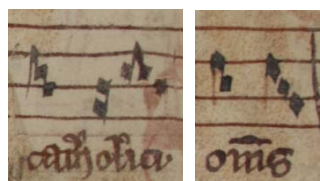 catholici
om̅s